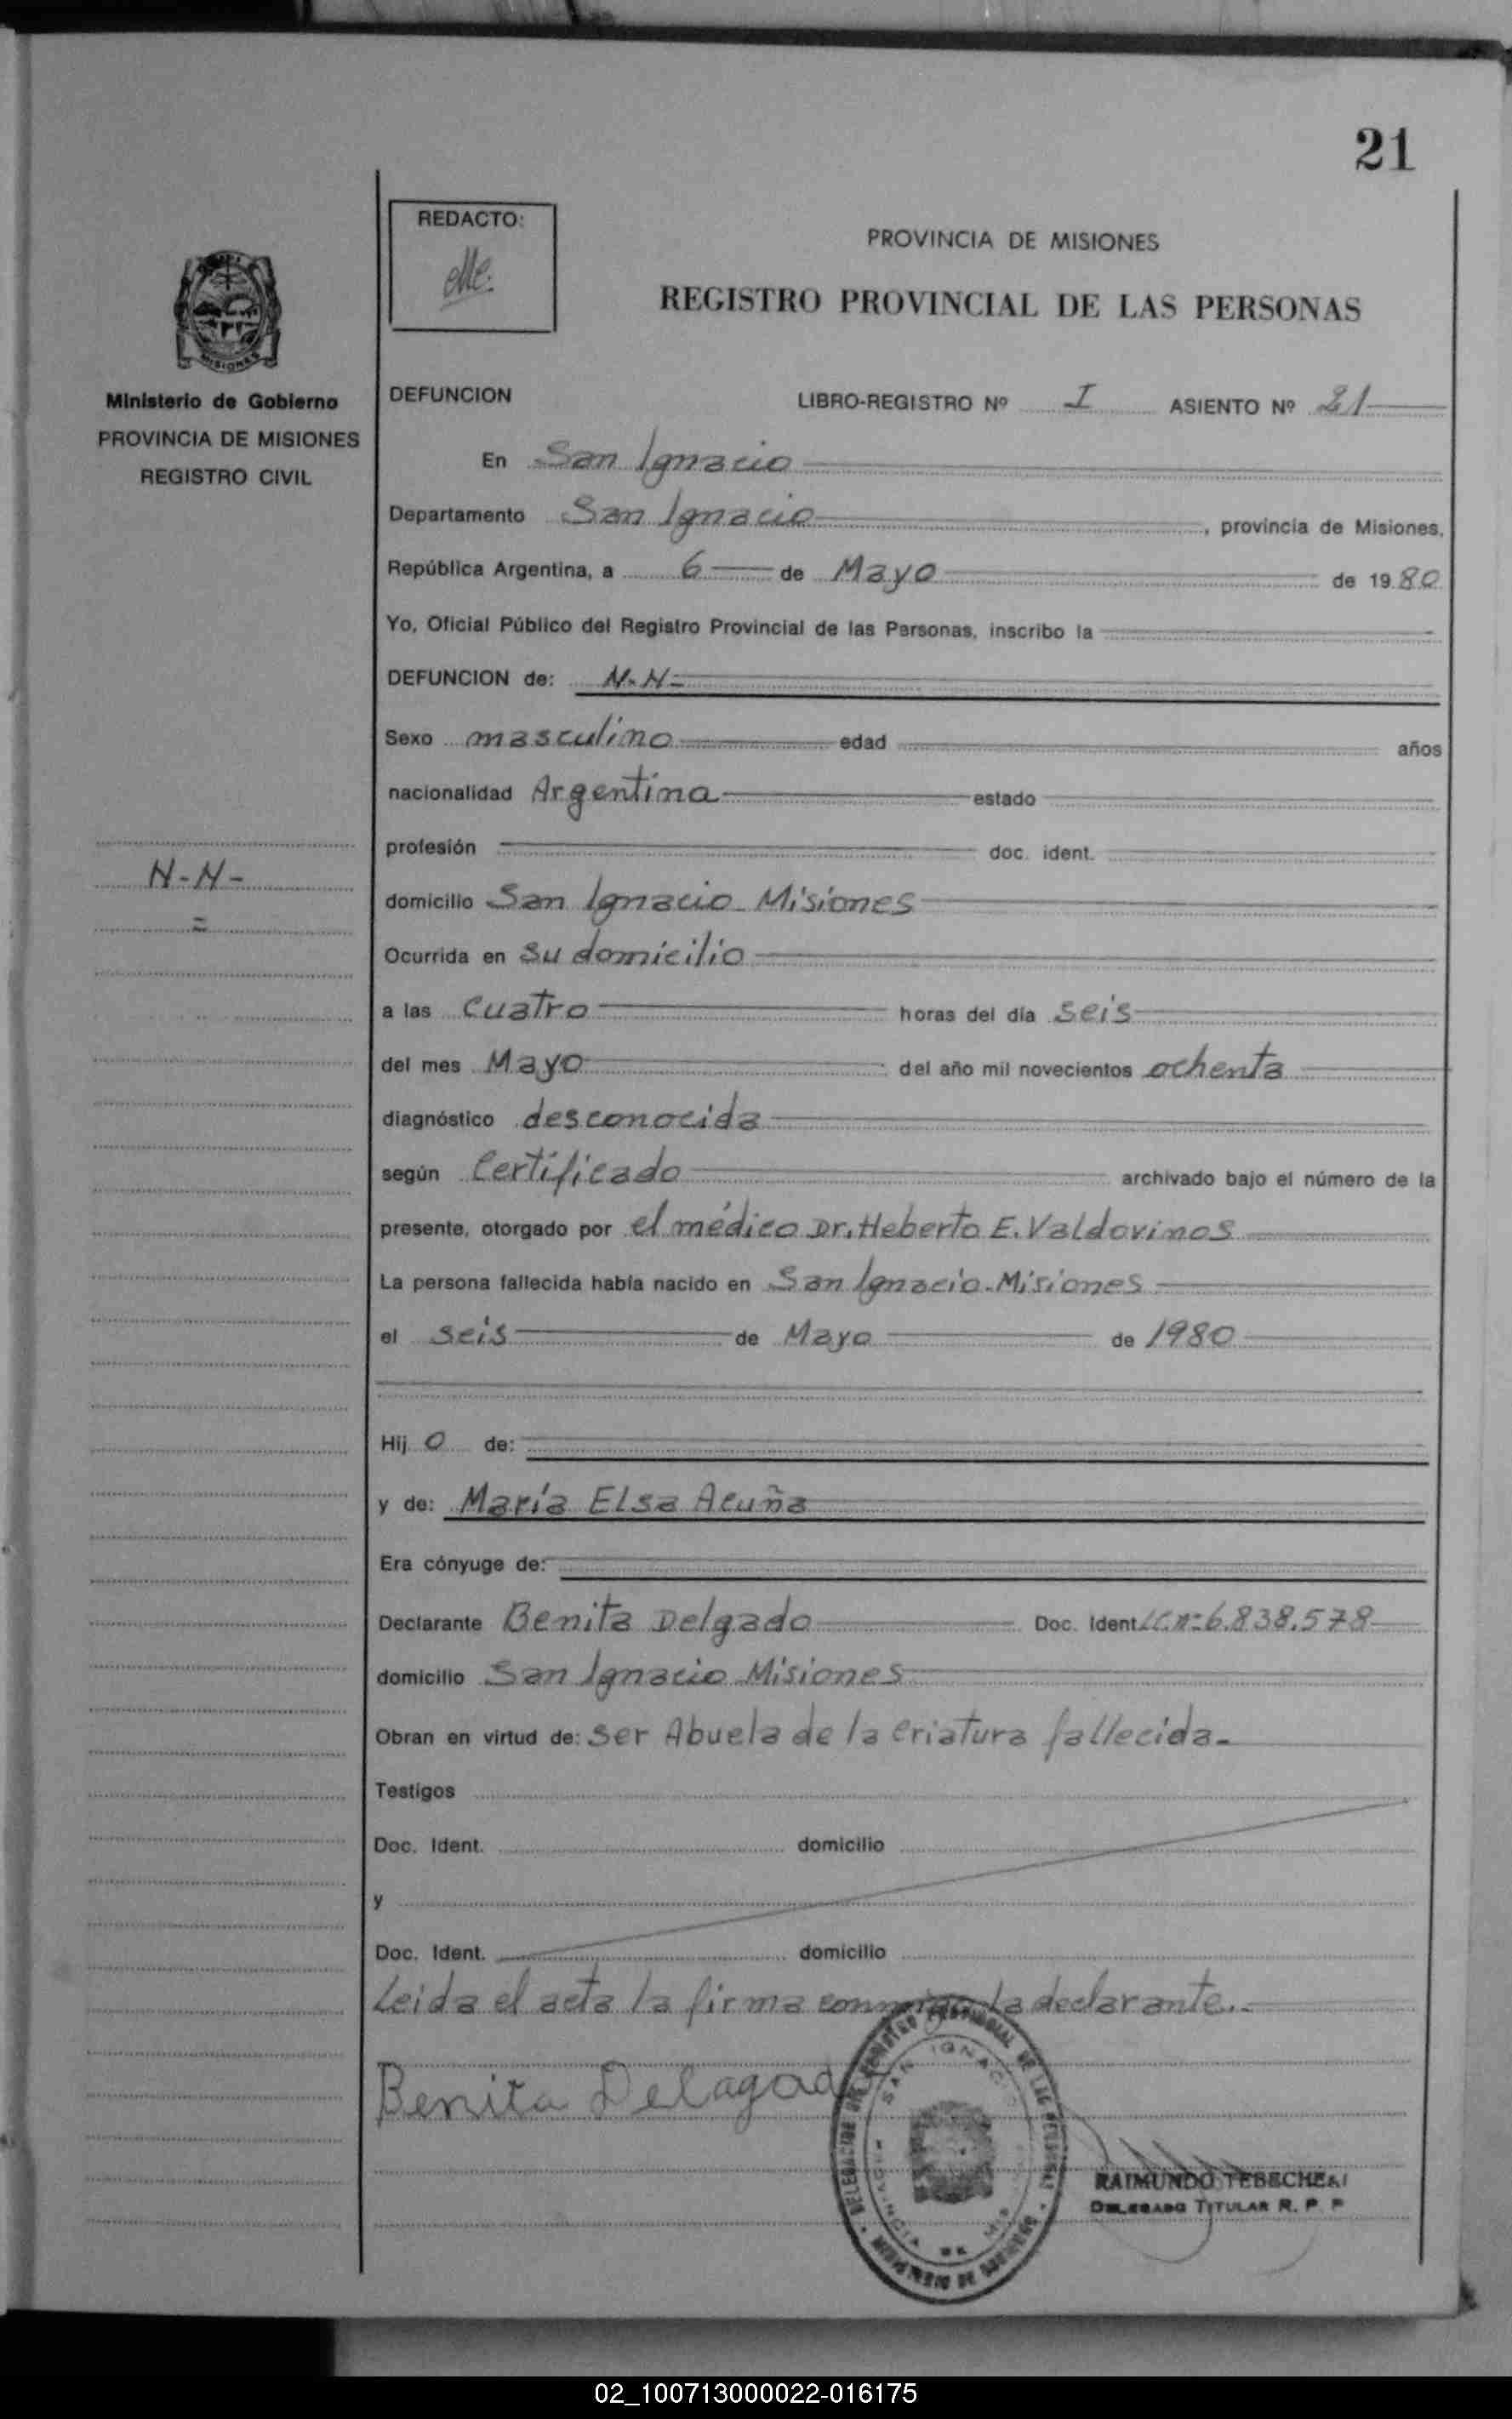 21
REDACTO:
PROVINCIA DE MISIONES
REGISTRO PROVINCIAL DE LAS PERSONAS
MISIONES
Ministerio de Gobierno
PROVINCIA DE MISIONES
REGISTRO CIVIL
DEFUNCION LIBRO-REGISTRO Nº I ASIENTO Nº 21
En San Ignacio
Departamento San Ignacio, provincia de Misiones,
República Argentina, a 6 de Mayo de 1980
Yo, Oficial Público del Registro Provincial de las Personas, inscribo la
DEFUNCION de: N.N-
Sexo masculino edad años
nacionalidad Argentina estado
profesión doc. ident.
N-N-
domicilio San Ignacio Misiones
Ocurrida en su domicilio
a las cuatro horas del día seis
del mes Mayo del año mil novecientos ochenta
diagnóstico desconocida
según Certificado archivado bajo el número de la
presente, otorgado por el médico Dr. Heberto E. Valdovinos
La persona fallecida había nacido en San Ignacio-Misiones
el seis de Mayo de 1980
Hijo de:
y de: María Elsa Acuña
Era cónyuge de:
Declarante Benita Delgado Doc. Ident. L.C.Nº 6.838.578
domicilio San Ignacio Misiones
Obran en virtud de: Ser Abuela de la criatura fallecida-
Testigos
Doc. Ident. domicilio
y
Doc. Ident. domicilio
Leida el acta la firma conmigo La declarante.-
Benita Delagado
SAN IGNACIO
RAIMUNDO TEBECHERI
DELEGADO TITULAR R. P. P
02_100713000022-016175